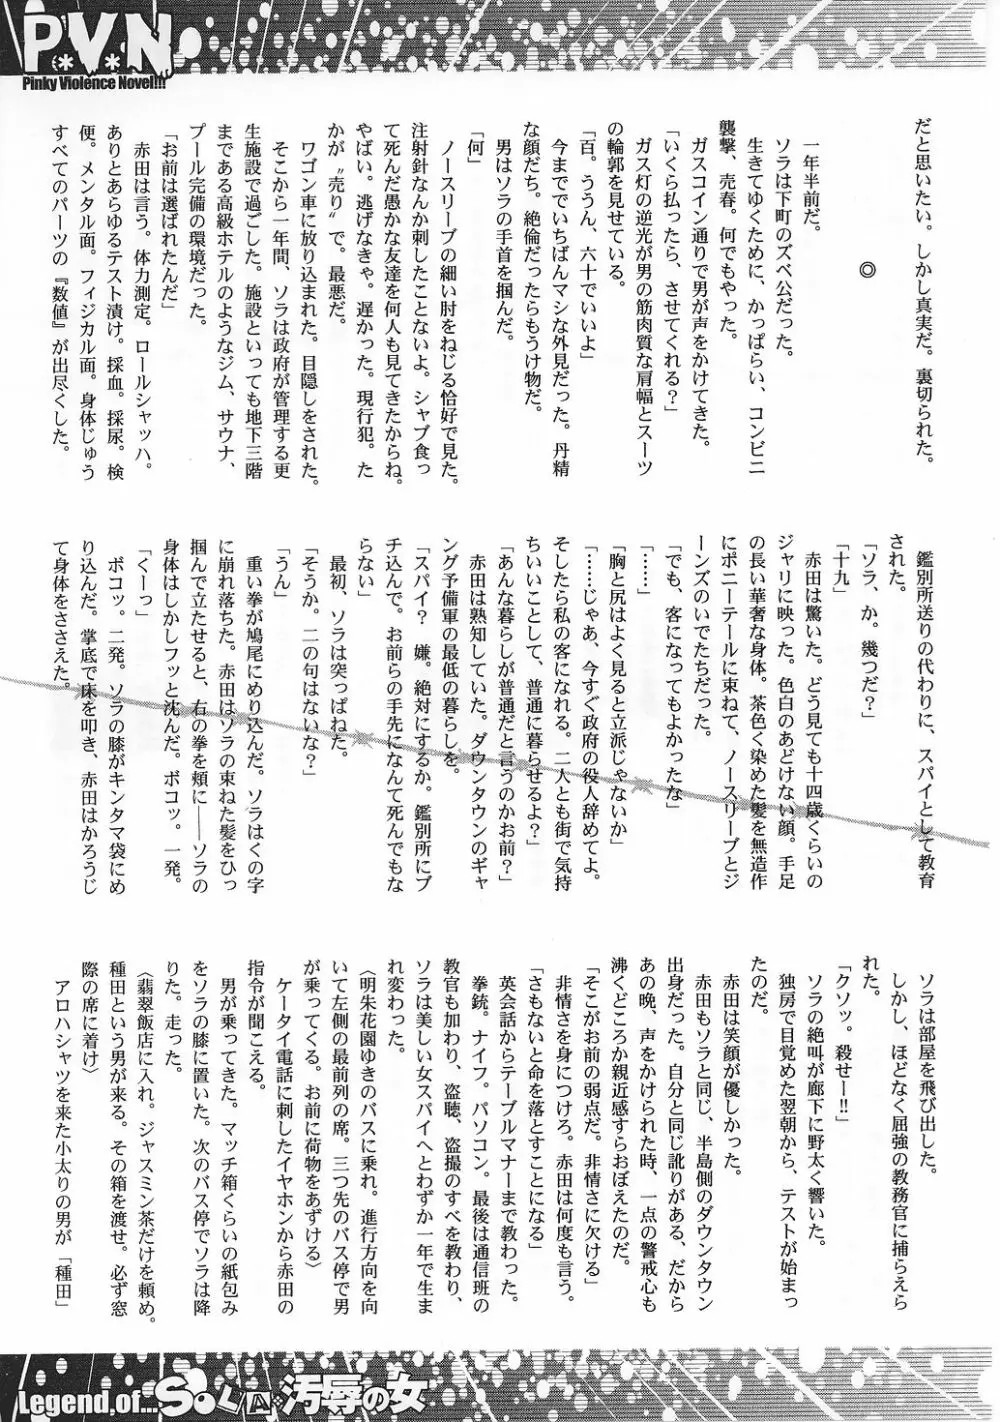 P*V*N
Pinky Violence Novel!!!
だと思いたい。しかし真実だ。裏切られた。
◎
一年半前だ。
ソラは下町のズベ公だった。
生きてゆくために、かっぱらい、コンビニ
襲撃、売春。何でもやった。
ガスコイン通りで男が声をかけてきた。
「いくら払ったら、させてくれる？」
ガス灯の逆光が男の筋肉質な肩幅とスーツ
の輪郭を見せている。
「百。ううん、六十でいいよ」
今まででいちばんマシな外見だった。丹精
な顔だち。絶倫だったらもうけ物だ。
男はソラの手首を掴んだ。
「何」
ノースリーブの細い肘をねじる恰好で見た。
注射針なんか刺したことないよ。シャブ食っ
て死んだ愚かな友達を何人も見てきたからね。
やばい。逃げなきゃ。遅かった。現行犯。た
かが〝売り〟で。最悪だ。
ワゴン車に放り込まれた。目隠しをされた。
そこから一年間、ソラは政府が管理する更
生施設で過ごした。施設といっても地下三階
まである高級ホテルのようなジム、サウナ、
プール完備の環境だった。
「お前は選ばれたんだ」
赤田は言う。体力測定。ロールシャッハ。
ありとあらゆるテスト漬け。採血。採尿。検
便。メンタル面。フィジカル面。身体じゅう
すべてのパーツの『数値』が出尽くした。
鑑別所送りの代わりに、スパイとして教育
された。
「ソラ、か。幾つだ？」
「十九」
赤田は驚いた。どう見ても十四歳くらいの
ジャリに映った。色白のあどけない顔。手足
の長い華奢な身体。茶色く染めた髪を無造作
にポニーテールに束ねて、ノースリーブとジ
ーンズのいでたちだった。
「でも、客になってもよかったな」
「……」
「胸と尻はよく見ると立派じゃないか」
「……じゃあ、今すぐ政府の役人辞めてよ。
そしたら私の客になれる。二人とも街で気持
ちいいことして、普通に暮らせるよ？」
「あんな暮らしが普通だと言うのかお前？」
赤田は熟知していた。ダウンタウンのギャ
ング予備軍の最低の暮らしを。
「スパイ？　嫌。絶対にするか。鑑別所にブ
チ込んで。お前らの手先になんて死んでもな
らない」
最初、ソラは突っぱねた。
「そうか。二の句はないな？」
「うん」
重い拳が鳩尾にめり込んだ。ソラはくの字
に崩れ落ちた。赤田はソラの束ねた髪をひっ
掴んで立たせると、右の拳を頬に――ソラの
身体はしかしフッと沈んだ。ボコッ。一発。
「くーっ」
ボコッ。二発。ソラの膝がキンタマ袋にめ
り込んだ。掌底で床を叩き、赤田はかろうじ
て身体をささえた。
ソラは部屋を飛び出した。
しかし、ほどなく屈強の教務官に捕らえら
れた。
「クソッ。殺せー!!」
ソラの絶叫が廊下に野太く響いた。
独房で目覚めた翌朝から、テストが始まっ
たのだ。
赤田は笑顔が優しかった。
赤田もソラと同じ、半島側のダウンタウン
出身だった。自分と同じ訛りがある、だから
あの晩、声をかけられた時、一点の警戒心も
沸くどころか親近感すらおぼえたのだ。
「そこがお前の弱点だ。非情さに欠ける」
非情さを身につけろ。赤田は何度も言う。
「さもないと命を落とすことになる」
英会話からテーブルマナーまで教わった。
拳銃。ナイフ。パソコン。最後は通信班の
教官も加わり、盗聴、盗撮のすべを教わり、
ソラは美しい女スパイへとわずか一年で生ま
れ変わった。
〈明朱花園ゆきのバスに乗れ。進行方向を向
いて左側の最前列の席。三つ先のバス停で男
が乗ってくる。お前に荷物をあずける〉
ケータイ電話に刺したイヤホンから赤田の
指令が聞こえる。
男が乗ってきた。マッチ箱くらいの紙包み
をソラの膝に置いた。次のバス停でソラは降
りた。走った。
〈翡翠飯店に入れ。ジャスミン茶だけを頼め。
種田という男が来る。その箱を渡せ。必ず窓
際の席に着け〉
アロハシャツを来た小太りの男が「種田」
Legend of... SOLA 汚辱の女